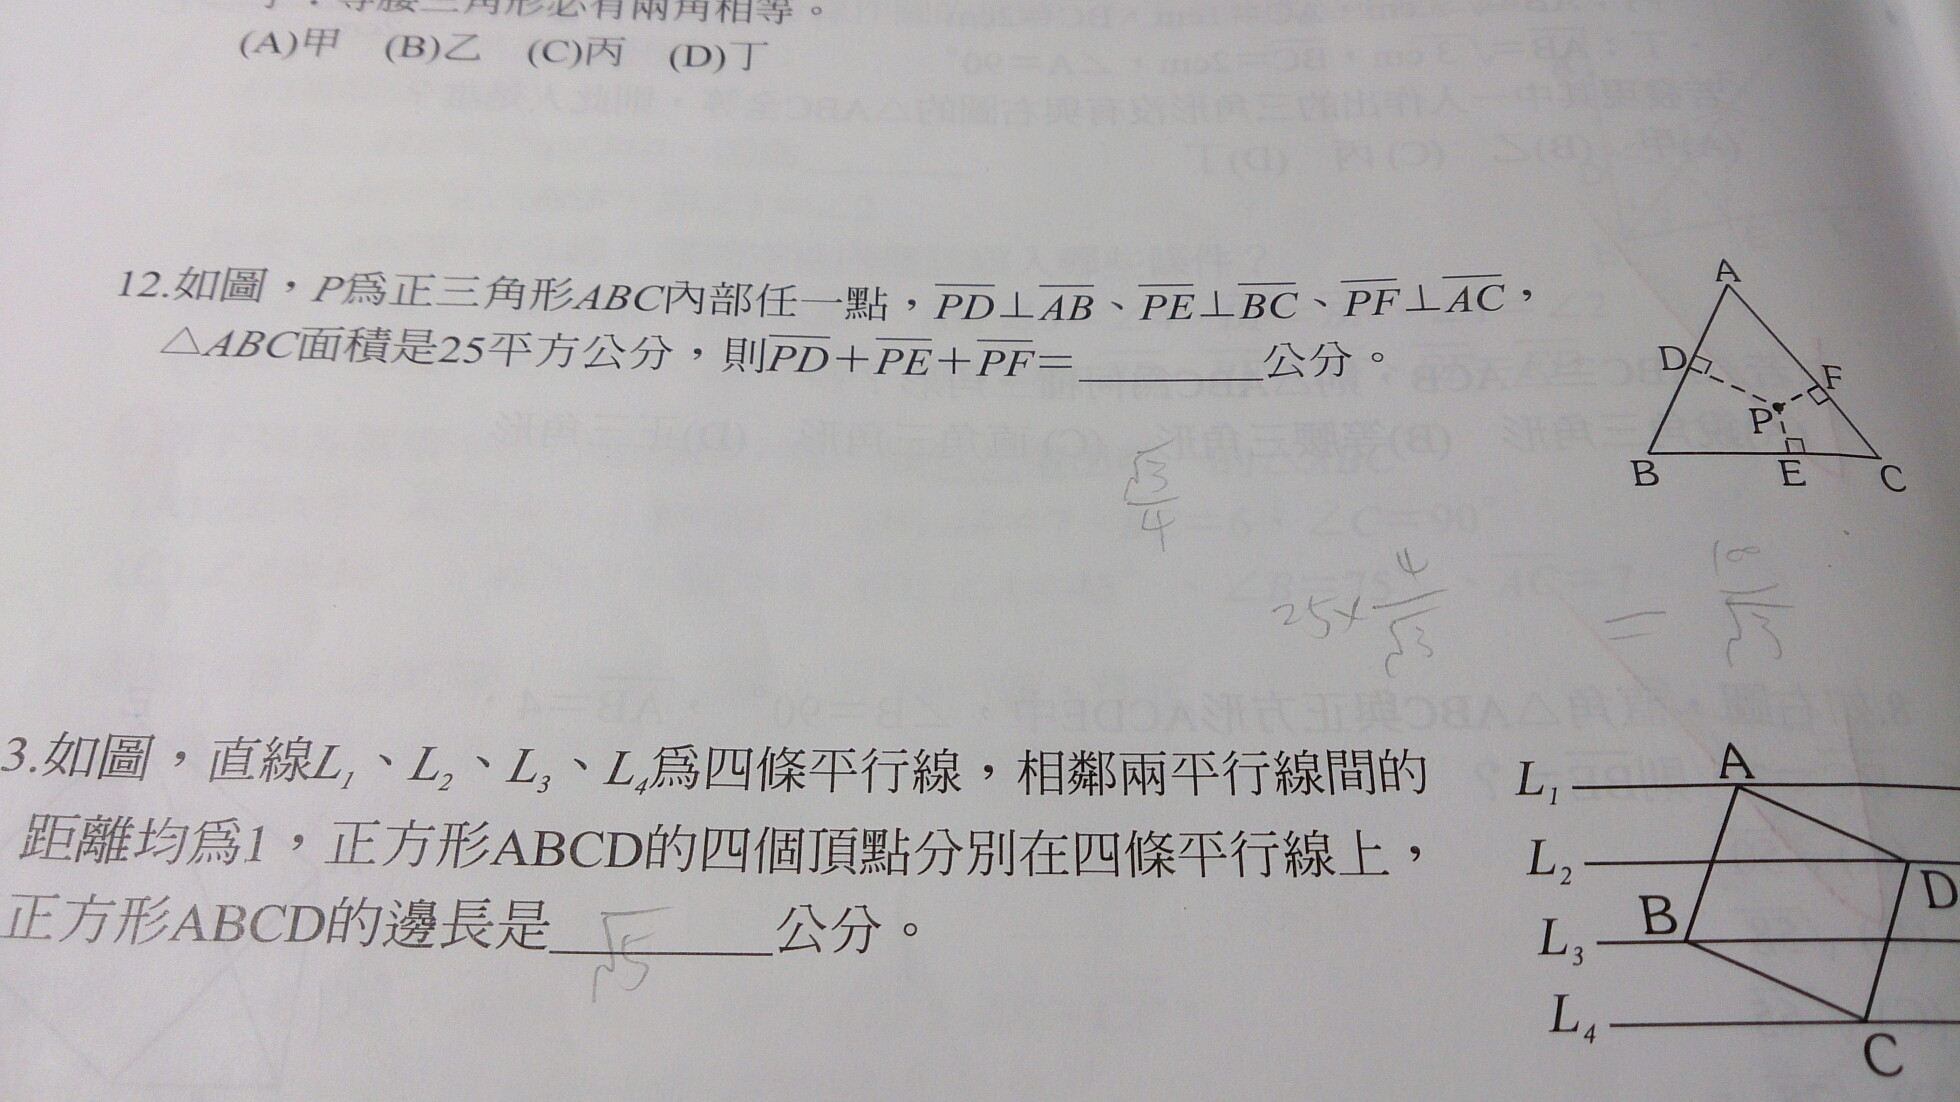 丁：等腰三角形必有兩角相等。
(A)甲 (B)乙 (C)丙 (D)丁
12.如圖，P為正三角形ABC內部任一點，PD⊥AB、PE⊥BC、PF⊥AC，
△ABC面積是25平方公分，則PD＋PE＋PF＝＿＿＿＿公分。
A
D
F
P
B
E
C
√3/4
25×4/√3 = 100/√3
3.如圖，直線L₁、L₂、L₃、L₄為四條平行線，相鄰兩平行線間的
距離均為1，正方形ABCD的四個頂點分別在四條平行線上，
正方形ABCD的邊長是 √5 公分。
L₁
A
L₂
D
L₃
B
L₄
C